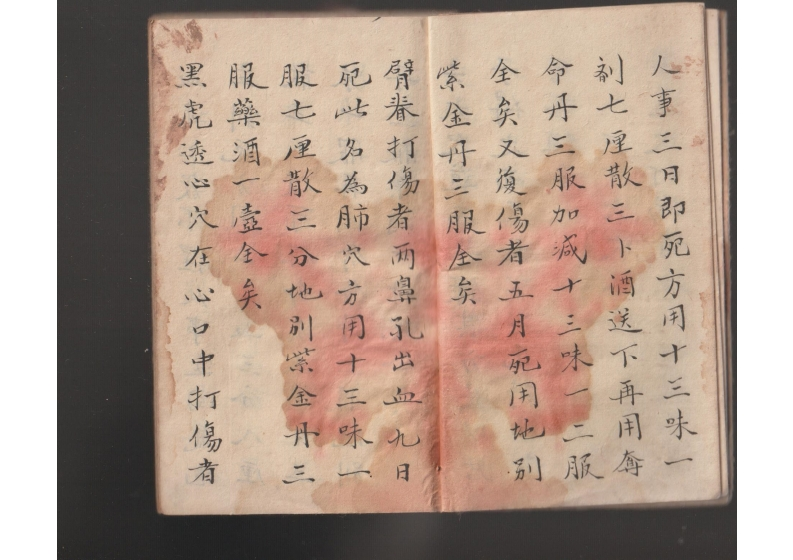 人事三日即死方用十三味一
剂七厘散三卜酒送下再用奪
命丹三服加減十三味一二服
全矣又復傷者五月死用地别
紫金丹三服全矣
臂脊打傷者两鼻孔出血九日
死此名為肺穴方用十三味一
服七厘散三分地别紫金丹三
服藥酒一壼全矣
黑虎透心穴在心口中打傷者